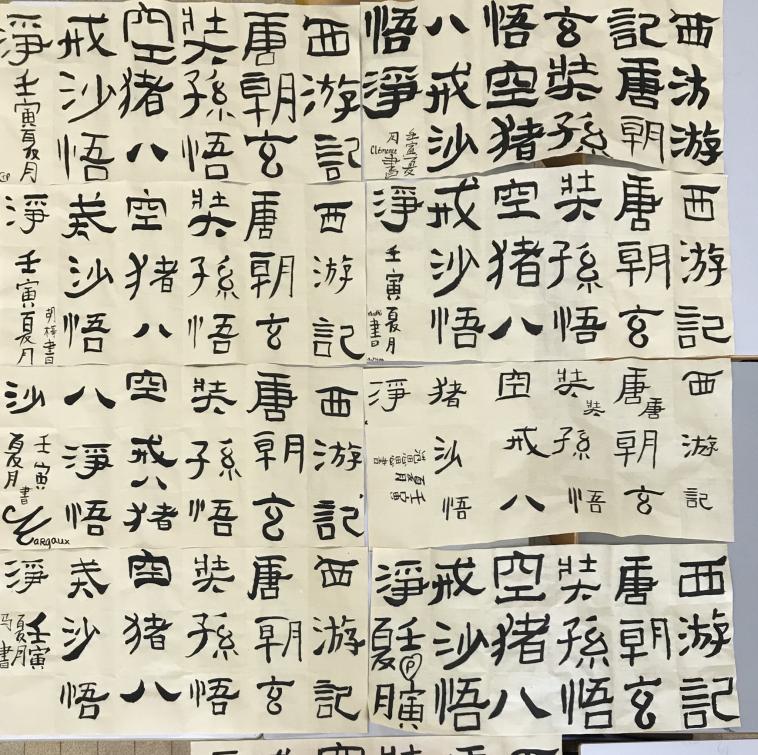 西游記
唐朝玄
奘孫悟
空猪八
戒沙悟
淨壬寅夏月
西游
記唐朝
玄奘孫
悟空猪
八戒沙
悟淨
壬寅夏
月 Clémence 書
西游記
唐朝玄
奘孫悟
空猪八
沙悟
淨壬寅夏月
書
西游記
唐朝玄
奘孫悟
空猪八
戒沙悟
淨壬寅夏月
書
西游記
唐朝玄
奘孫悟
空戒八猪
八淨悟
沙
壬寅
夏月書
Margaux
西游記
唐唐朝玄
奘奘孫悟
空戒八
猪沙悟
淨
壬寅
夏月
書
西游記
唐朝玄
奘孫悟
空猪八
沙悟
淨
壬寅
夏月
马書
西游記
唐朝玄
奘孫悟
空猪八
戒沙悟
淨
壬寅
夏月
P